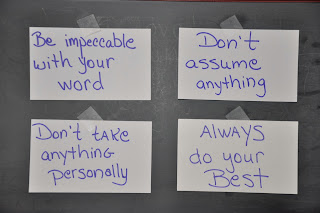 Be impeccable
with your
word
Don't
assume
anything
Don't take
anything
personally
ALWAYS
do your
Best